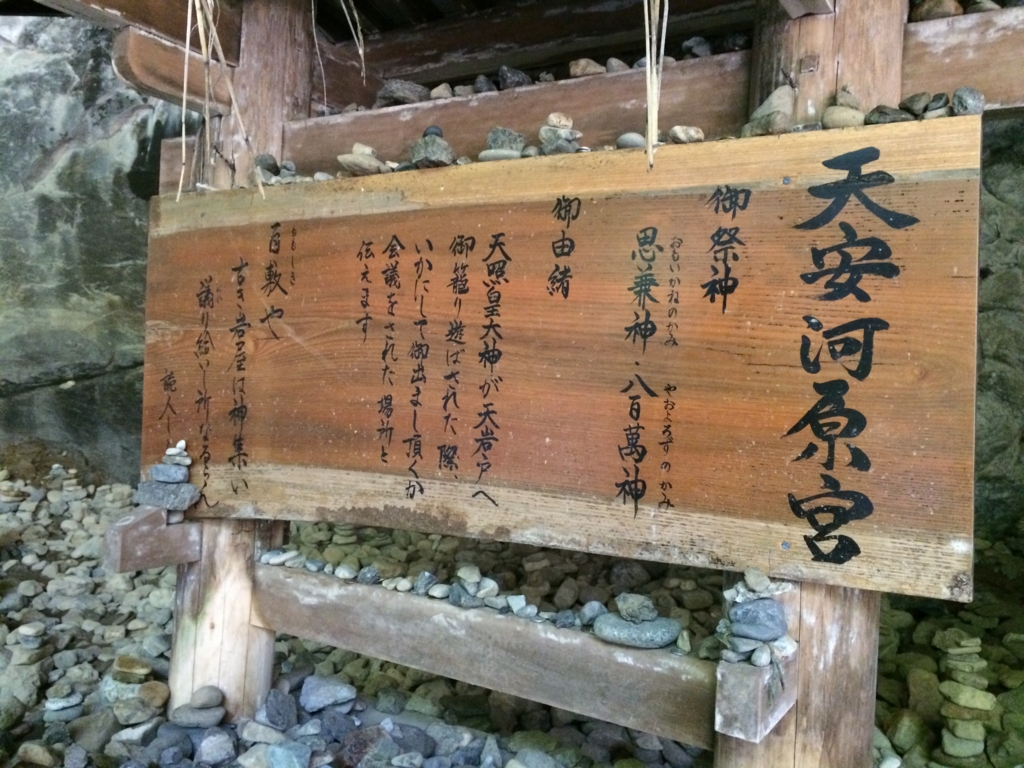 天安河原宮
御祭神
思兼神・八百萬神
おもいかねのかみ
やおよろずのかみ
御由緒
天照皇大神が天岩戸へ
御籠り遊ばされた際、
いかにして御出まし頂くか
会議をされた場所と
伝えます
百敷や
ももしき
古き岩屋は神集い
議り給いし所なるらん
詠人し